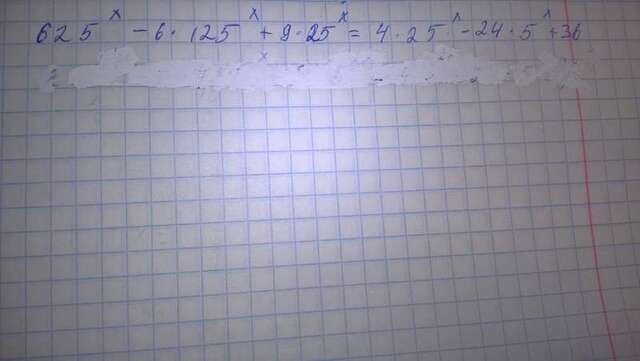 625^x - 6·125^x + 9·25^x = 4·25^x - 24·5^x + 36